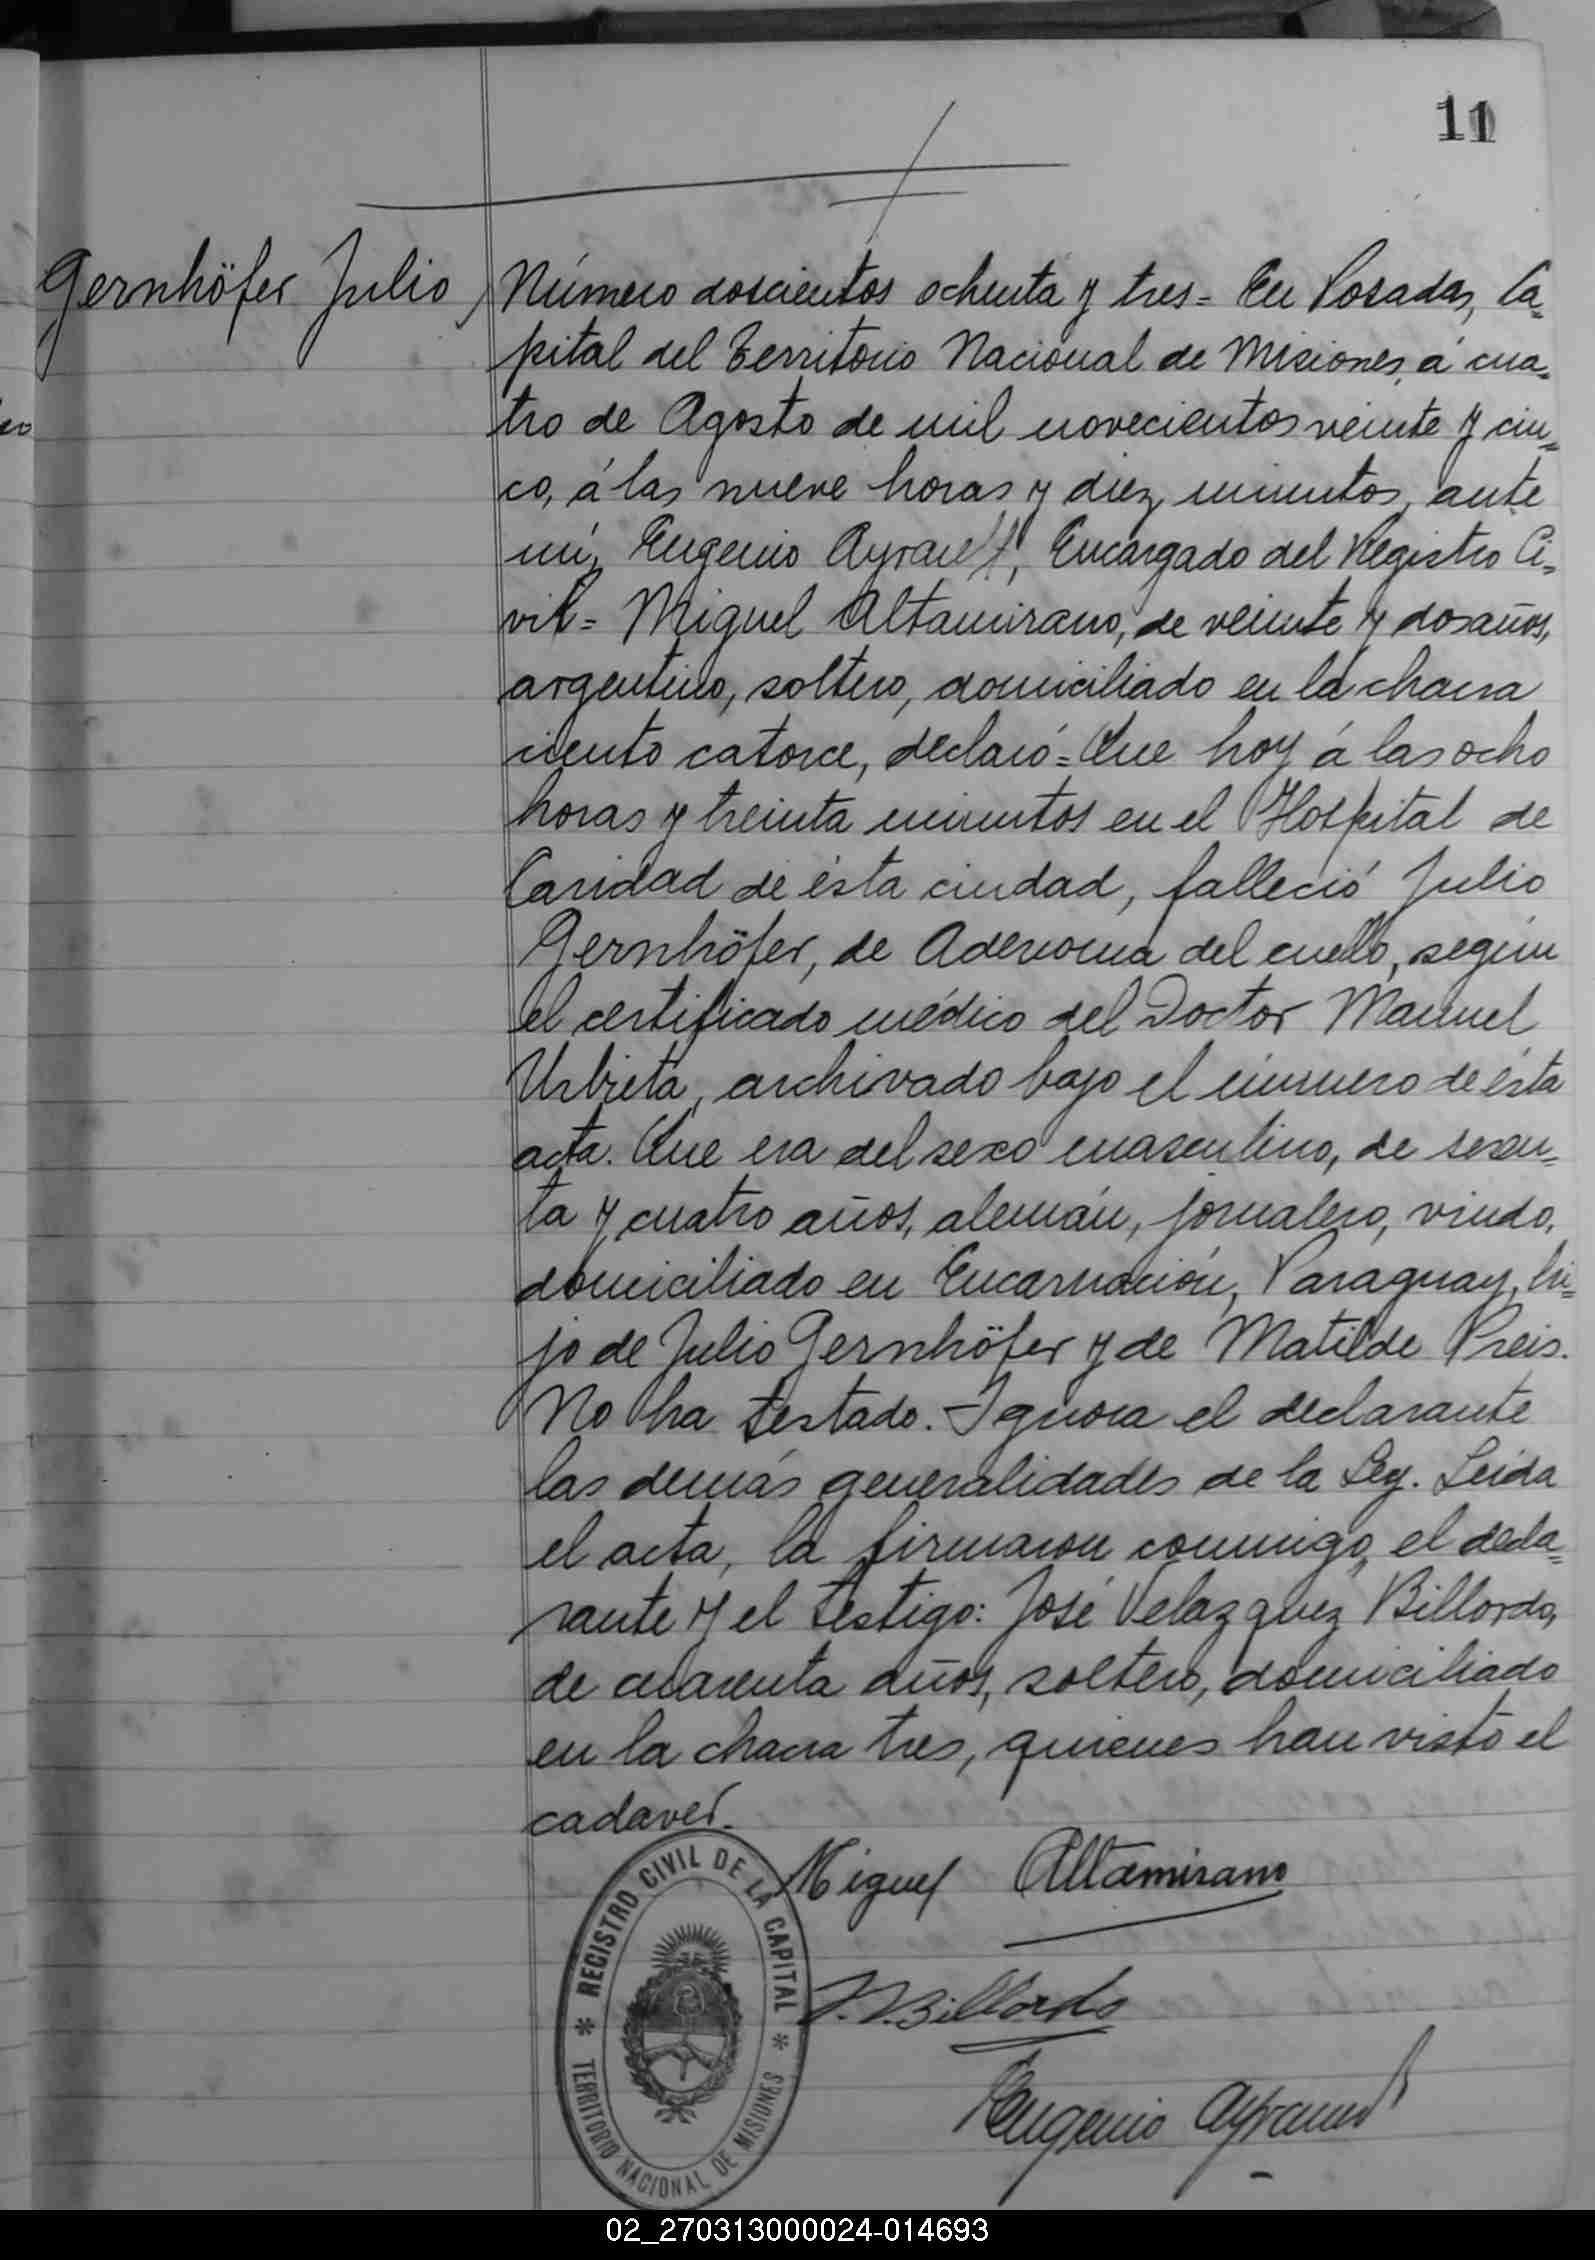 11
Gernhöfer Julio
Número doscientos ochenta y tres= En Posadas, Ca=
pital del Territorio Nacional de Misiones, á cua=
tro de Agosto de mil novecientos veinte y cin=
co, á las nueve horas y diez minutos, ante
mí, Eugenio Ayrault, Encargado del Registro Ci=
vil= Miguel Altamirano, de veinte y dos años,
argentino, soltero, domiciliado en la chacra
ciento catorce, declaró= Que hoy á las ocho
horas y treinta minutos en el Hospital de
Caridad de ésta ciudad, falleció Julio
Gernhöfer, de Adenoma del cuello, según
el certificado médico del Doctor Manuel
Urbieta, archivado bajo el número de ésta
acta. Que era del sexo masculino, de sesen=
ta y cuatro años, alemán, jornalero, viudo,
domiciliado en Encarnación, Paraguay, hi=
jo de Julio Gernhöfer y de Matilde Preis.
No ha testado. Ignora el declarante
las demás generalidades de la Ley. Leída
el acta, la firmaron conmigo, el decla=
rante y el testigo: José Velazquez Billordo,
de cuarenta años, soltero, domiciliado
en la chacra tres, quienes han visto el
cadaver.
Miguel Altamirano
J. V. Billordo
Eugenio Ayrault
REGISTRO CIVIL DE LA CAPITAL
* TERRITORIO NACIONAL DE MISIONES *
02_270313000024-014693